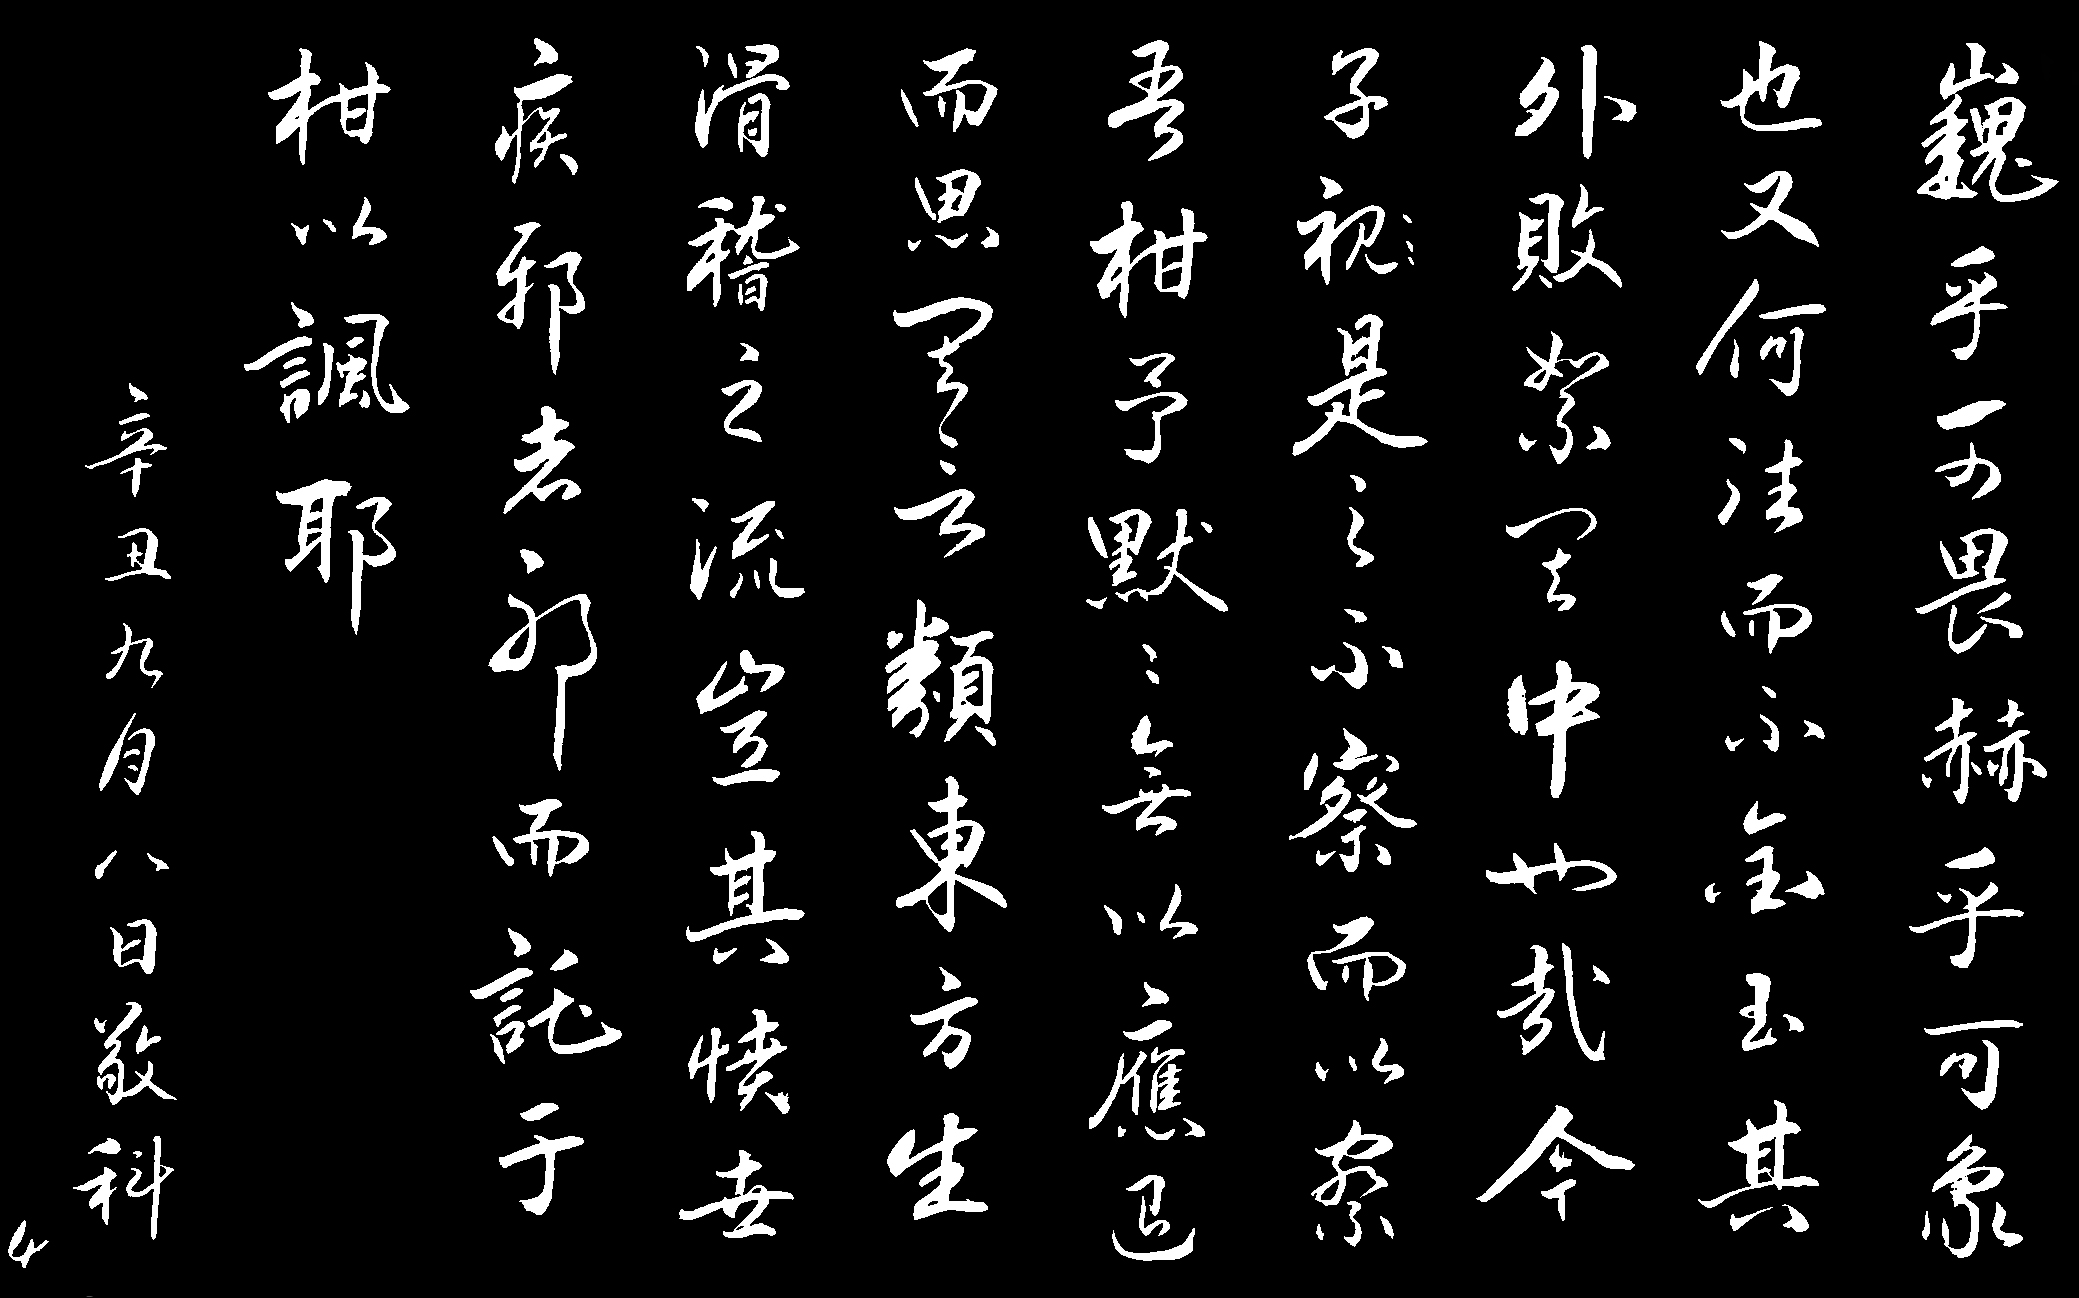 巍乎可畏赫乎可象
也又何往而不金玉其
外敗絮其中也哉今
子視是之不察而以察
吾柑予默〻無以應退
而思其言類東方生
滑稽之流豈其憤世
疾邪者耶而託于
柑以諷耶
辛丑九月八日敬科
4